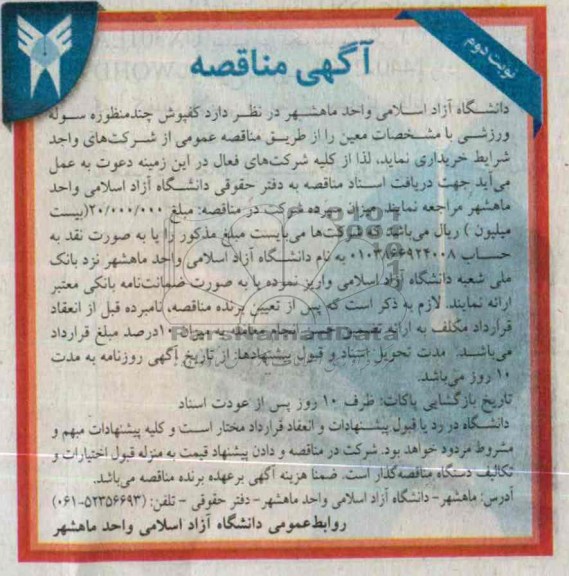 نوبت دوم
آگهی مناقصه
دانشگاه آزاد اسلامی واحد ماهشهر در نظر دارد کفپوش چندمنظوزه سوله
ورزشی با مشخصات معین را از طریق مناقصه عمومی از شرکت‌های واجد
شرایط خریداری نماید، لذا از کلیه شرکت‌های فعال در این زمینه دعوت به عمل
می‌آید جهت دریافت اسناد مناقصه به دفتر حقوقی دانشگاه آزاد اسلامی واحد
ماهشهر مراجعه نمایند. میزان سپرده شرکت در مناقصه: مبلغ ۲۰/۰۰۰/۰۰۰(بیست
میلیون ) ریال می‌باشد که شرکت‌ها می‌بایست مبلغ مذکور را یا به صورت نقد به
حساب ۰۱۰۳۱۶۶۹۲۴۰۰۸ به نام دانشگاه آزاد اسلامی واحد ماهشهر نزد بانک
ملی شعبه دانشگاه آزاد اسلامی واریز نموده یا به صورت ضمانت‌نامه بانکی معتبر
ارائه نمایند. لازم به ذکر است که پس از تعیین برنده مناقصه، نامبرده قبل از انعقاد
قرارداد مکلف به ارائه تضمین حسن انجام معامله به میزان ۱۰درصد مبلغ قرارداد
می‌باشد. مدت تحویل اسناد و قبول پیشنهادها: از تاریخ آگهی روزنامه به مدت
۱۰ روز می‌باشد.
تاریخ بازگشایی پاکات: ظرف ۱۰ روز پس از عودت اسناد
دانشگاه در رد یا قبول پیشنهادات و انعقاد قرارداد مختار است و کلیه پیشنهادات مبهم و
مشروط مردود خواهد بود. شرکت در مناقصه و دادن پیشنهاد قیمت به منزله قبول اختیارات و
تکالیف دستگاه مناقصه‌گذار است. ضمنا هزینه آگهی برعهده برنده مناقصه می‌باشد.
آدرس: ماهشهر- دانشگاه آزاد اسلامی واحد ماهشهر- دفتر حقوقی - تلفن: (۵۲۳۵۶۶۹۳-۰۶۱)
روابط‌عمومی دانشگاه آزاد اسلامی واحد ماهشهر
ParsNamadData